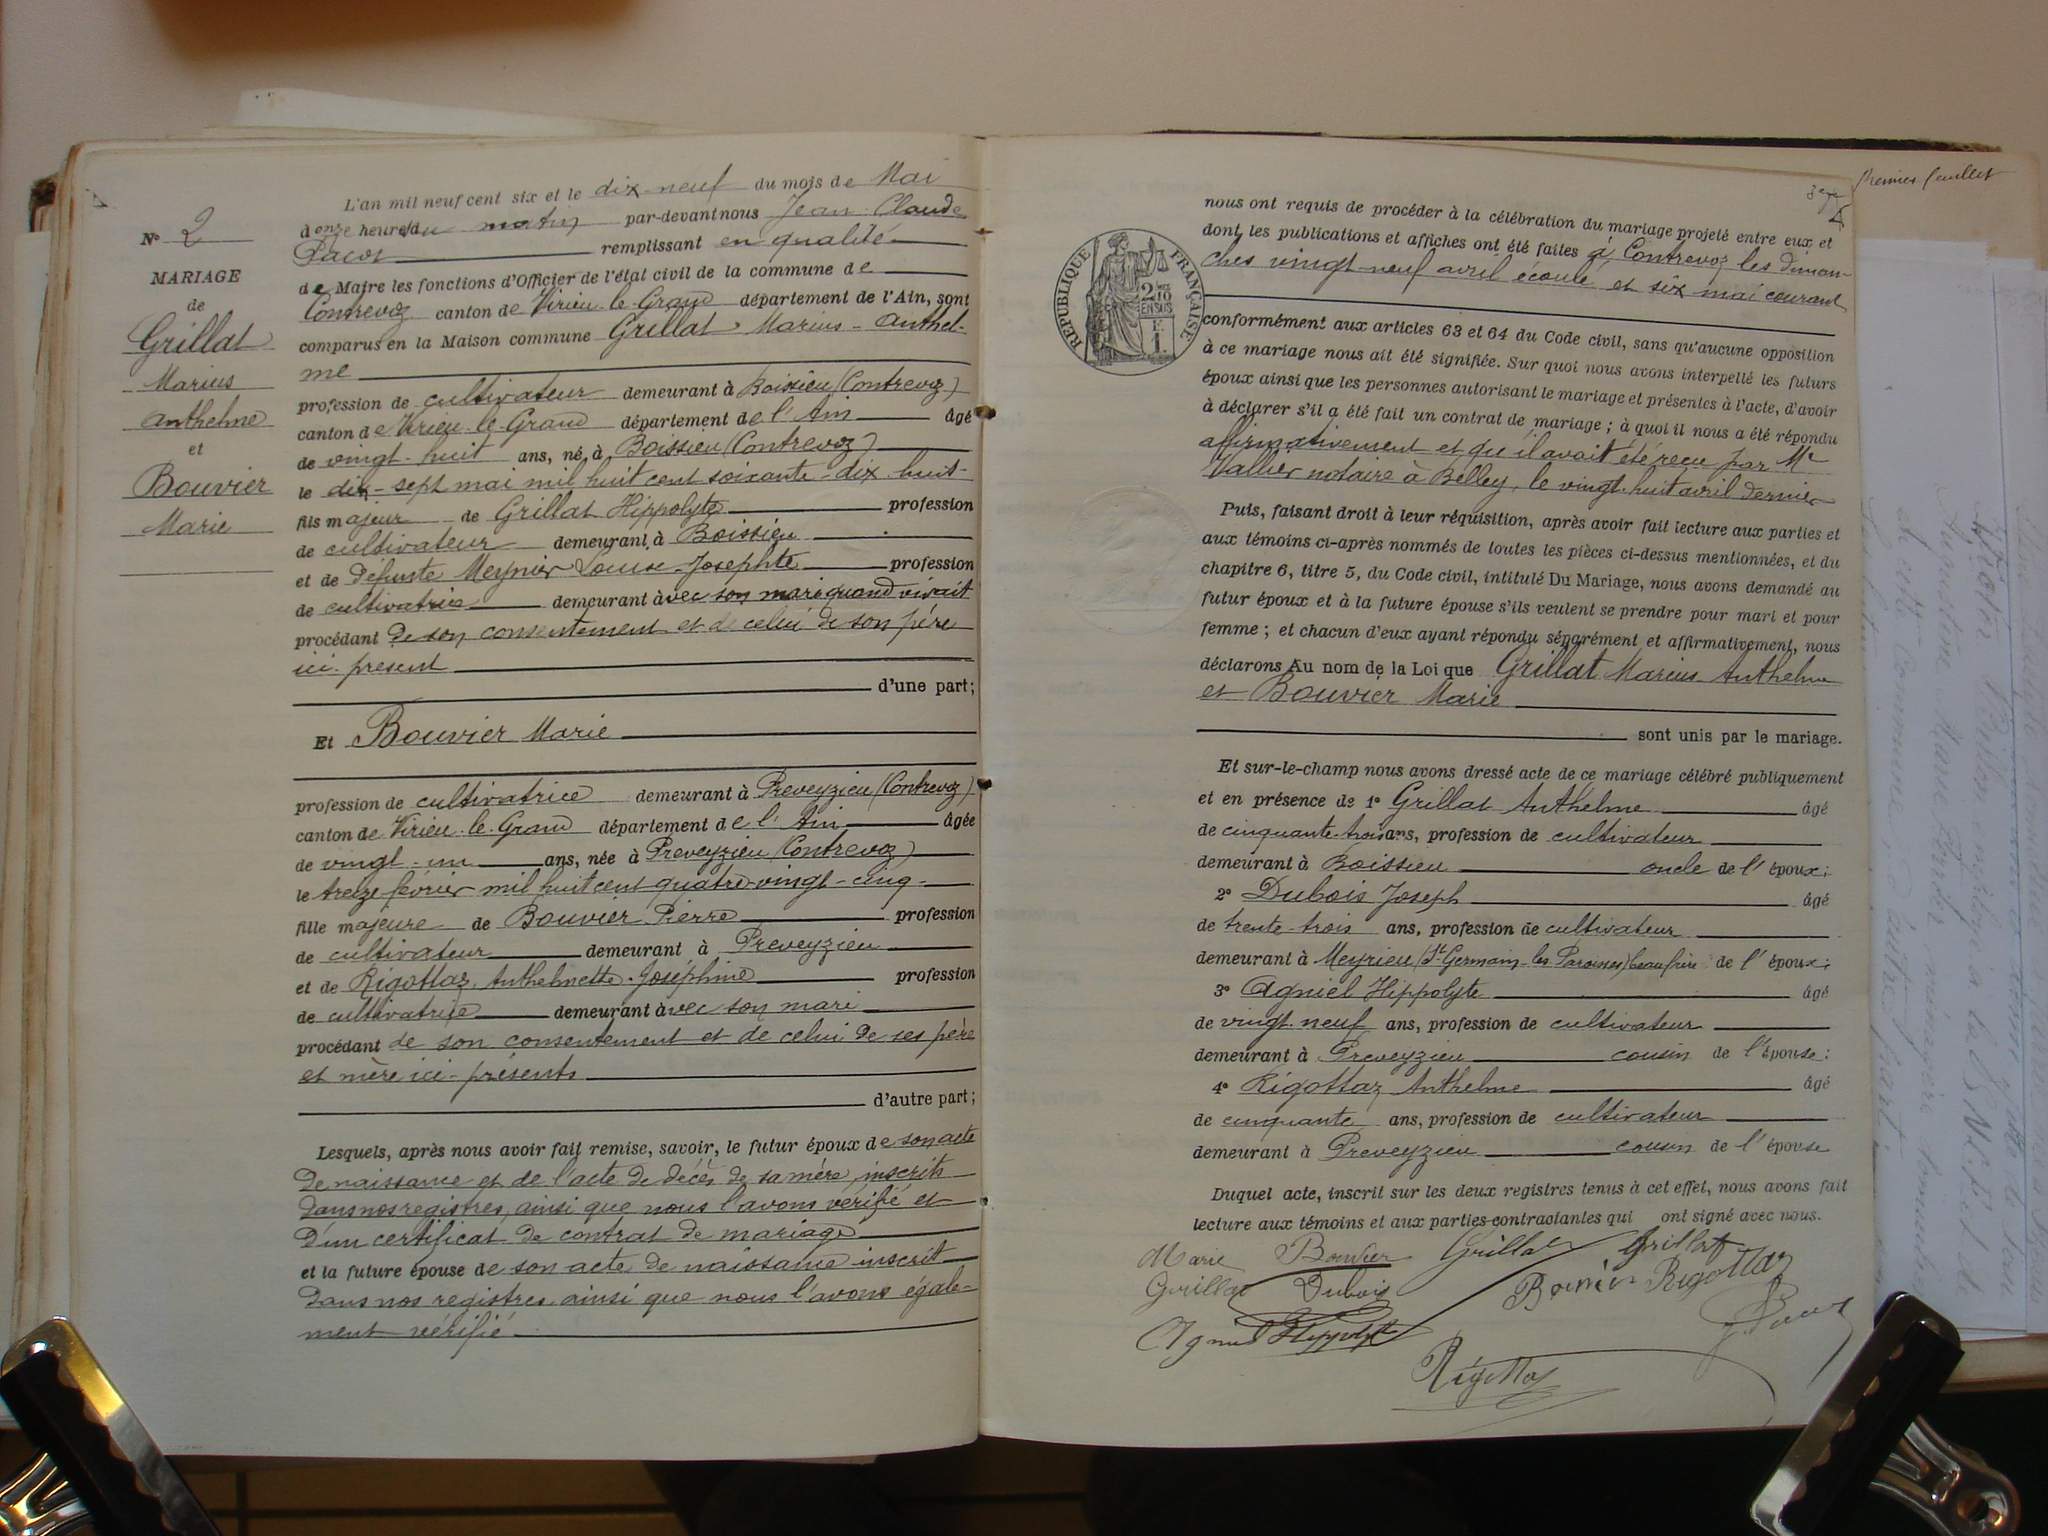 L'an mil neuf cent six et le dix-neuf du mois de Mai
à onze heures du matin par-devant nous Jean Claude
Pacot remplissant en qualité
de Maire les fonctions d'Officier de l'état civil de la commune de
Contrevoz canton de Virieu-le-Grand département de l'Ain, sont
comparus en la Maison commune Grillat Marius-Anthel-
me
profession de cultivateur demeurant à Boissieu (Contrevoz)
canton de Virieu-le-Grand département de l'Ain âgé
de vingt-huit ans, né à Boissieu (Contrevoz)
le dix-sept mai mil huit cent soixante-dix-huit
fils majeur de Grillat Hippolyte profession
de cultivateur demeurant à Boissieu
et de défunte Meynier Louise-Josephte profession
de cultivatrice demeurant avec son mari quand vivait
procédant de son consentement et de celui de son père
ici présent
d'une part;
Et Bouvier Marie
profession de cultivatrice demeurant à Preveyzieu (Contrevoz)
canton de Virieu-le-Grand département de l'Ain âgée
de vingt-un ans, née à Preveyzieu (Contrevoz)
le treize février mil huit cent quatre-vingt-cinq
fille majeure de Bouvier Pierre profession
de cultivateur demeurant à Preveyzieu
et de Rigottaz Anthelmette-Joséphine profession
de cultivatrice demeurant avec son mari
procédant de son consentement et de celui de ses père
et mère ici présents
d'autre part;
Lesquels, après nous avoir fait remise, savoir, le futur époux de son acte
de naissance et de l'acte de décès de sa mère, inscrits
dans nos registres, ainsi que nous l'avons vérifié et
d'un certificat de contrat de mariage
et la future épouse de son acte de naissance inscrit
dans nos registres ainsi que nous l'avons égale-
ment vérifié
No 2
MARIAGE
de
Grillat
Marius
Anthelme
et
Bouvier
Marie
Premier feuillet
RÉPUBLIQUE FRANÇAISE
2 MES
10
EN SUS
nous ont requis de procéder à la célébration du mariage projeté entre eux et
dont les publications et affiches ont été faites à Contrevoz les diman-
ches vingt-neuf avril écoulé et six mai courant
conformément aux articles 63 et 64 du Code civil, sans qu'aucune opposition
à ce mariage nous ait été signifiée. Sur quoi nous avons interpellé les futurs
époux ainsi que les personnes autorisant le mariage et présentes à l'acte, d'avoir
à déclarer s'il a été fait un contrat de mariage; à quoi il nous a été répondu
affirmativement et qu'il avait été reçu par Me
Vallier notaire à Belley, le vingt-huit avril dernier
Puis, faisant droit à leur réquisition, après avoir fait lecture aux parties et
aux témoins ci-après nommés de toutes les pièces ci-dessus mentionnées, et du
chapitre 6, titre 5, du Code civil, intitulé Du Mariage, nous avons demandé au
futur époux et à la future épouse s'ils veulent se prendre pour mari et pour
femme; et chacun d'eux ayant répondu séparément et affirmativement, nous
déclarons Au nom de la Loi que Grillat Marius Anthelme
et Bouvier Marie
sont unis par le mariage.
Et sur-le-champ nous avons dressé acte de ce mariage célébré publiquement
et en présence de 1o Grillat Anthelme âgé
de cinquante-trois ans, profession de cultivateur
demeurant à Boissieu oncle de l'époux;
2o Dubois Joseph âgé
de trente-trois ans, profession de cultivateur
demeurant à Meyrieu (St-Germain-les-Paroisses) beau frère de l'époux;
3o Agniel Hippolyte âgé
de vingt-neuf ans, profession de cultivateur
demeurant à Preveyzieu cousin de l'épouse;
4o Rigottaz Anthelme âgé
de cinquante ans, profession de cultivateur
demeurant à Preveyzieu cousin de l'épouse
Duquel acte, inscrit sur les deux registres tenus à cet effet, nous avons fait
lecture aux témoins et aux parties contractantes qui ont signé avec nous.
Marie Bouvier Grillat Grillat
Grillat Dubois Bouvier Rigottaz
Agniel Hippolyte J. Pacot
Rigottaz